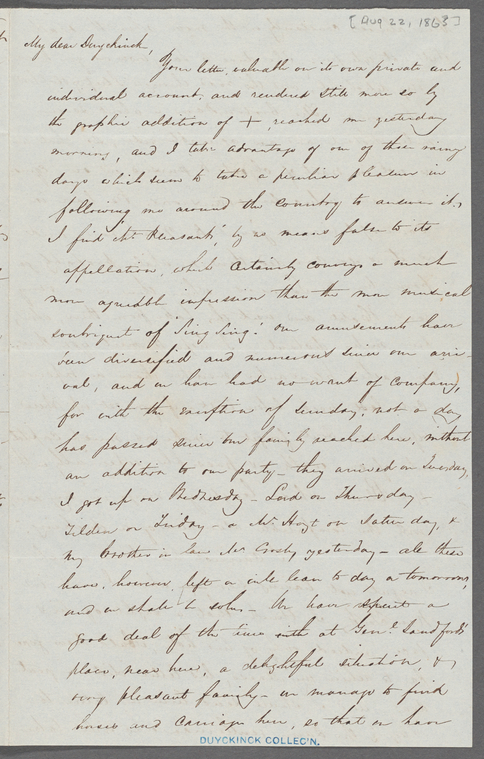 [Aug 22, 1863]
My dear Duyckinck,
Your letter, valuable on its own private and
individual account, and rendered still more so by
the graphic addition of +, reached me yesterday
morning, and I take advantage of one of these rainy
days which seem to take a peculiar pleasure in
following me around the country to answer it.
I find "Mt Pleasant", by no means false to its
appellation, which certainly conveys a much
more agreeable impression than the more musical
soubriquet of 'Sing Sing'. Our amusements have
been diversified and numerous since our arri-
val, and we have had no want of company,
for with the exception of Sunday, not a day
has passed since the family reached here, without
an addition to our party - they arrived on Tuesday,
I got up on Wednesday - Lord on Thursday -
Tilden on Friday - a Mr Hoyt on Saturday, &
my brother in law Mr Crosby yesterday - all these
have, however, left or will leave to day or tomorrow,
and we shall be solus - We have spent a
good deal of the time at Genl Sandford's
place, near here, a delightful situation, &
very pleasant family - we manage to find
horses and carriage here, so that we have
DUYCKINCK COLLEC'N.